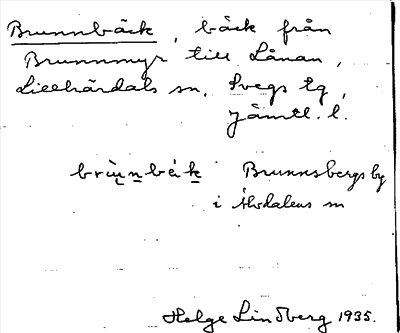 Brunnbäck, bäck från
Brunnmyr till Lånan,
Lillhärdals sn, Svegs tg,
Jämtl. l.
Brunnsbergs by
i Älvdalens sn
Helge Lindberg 1935.